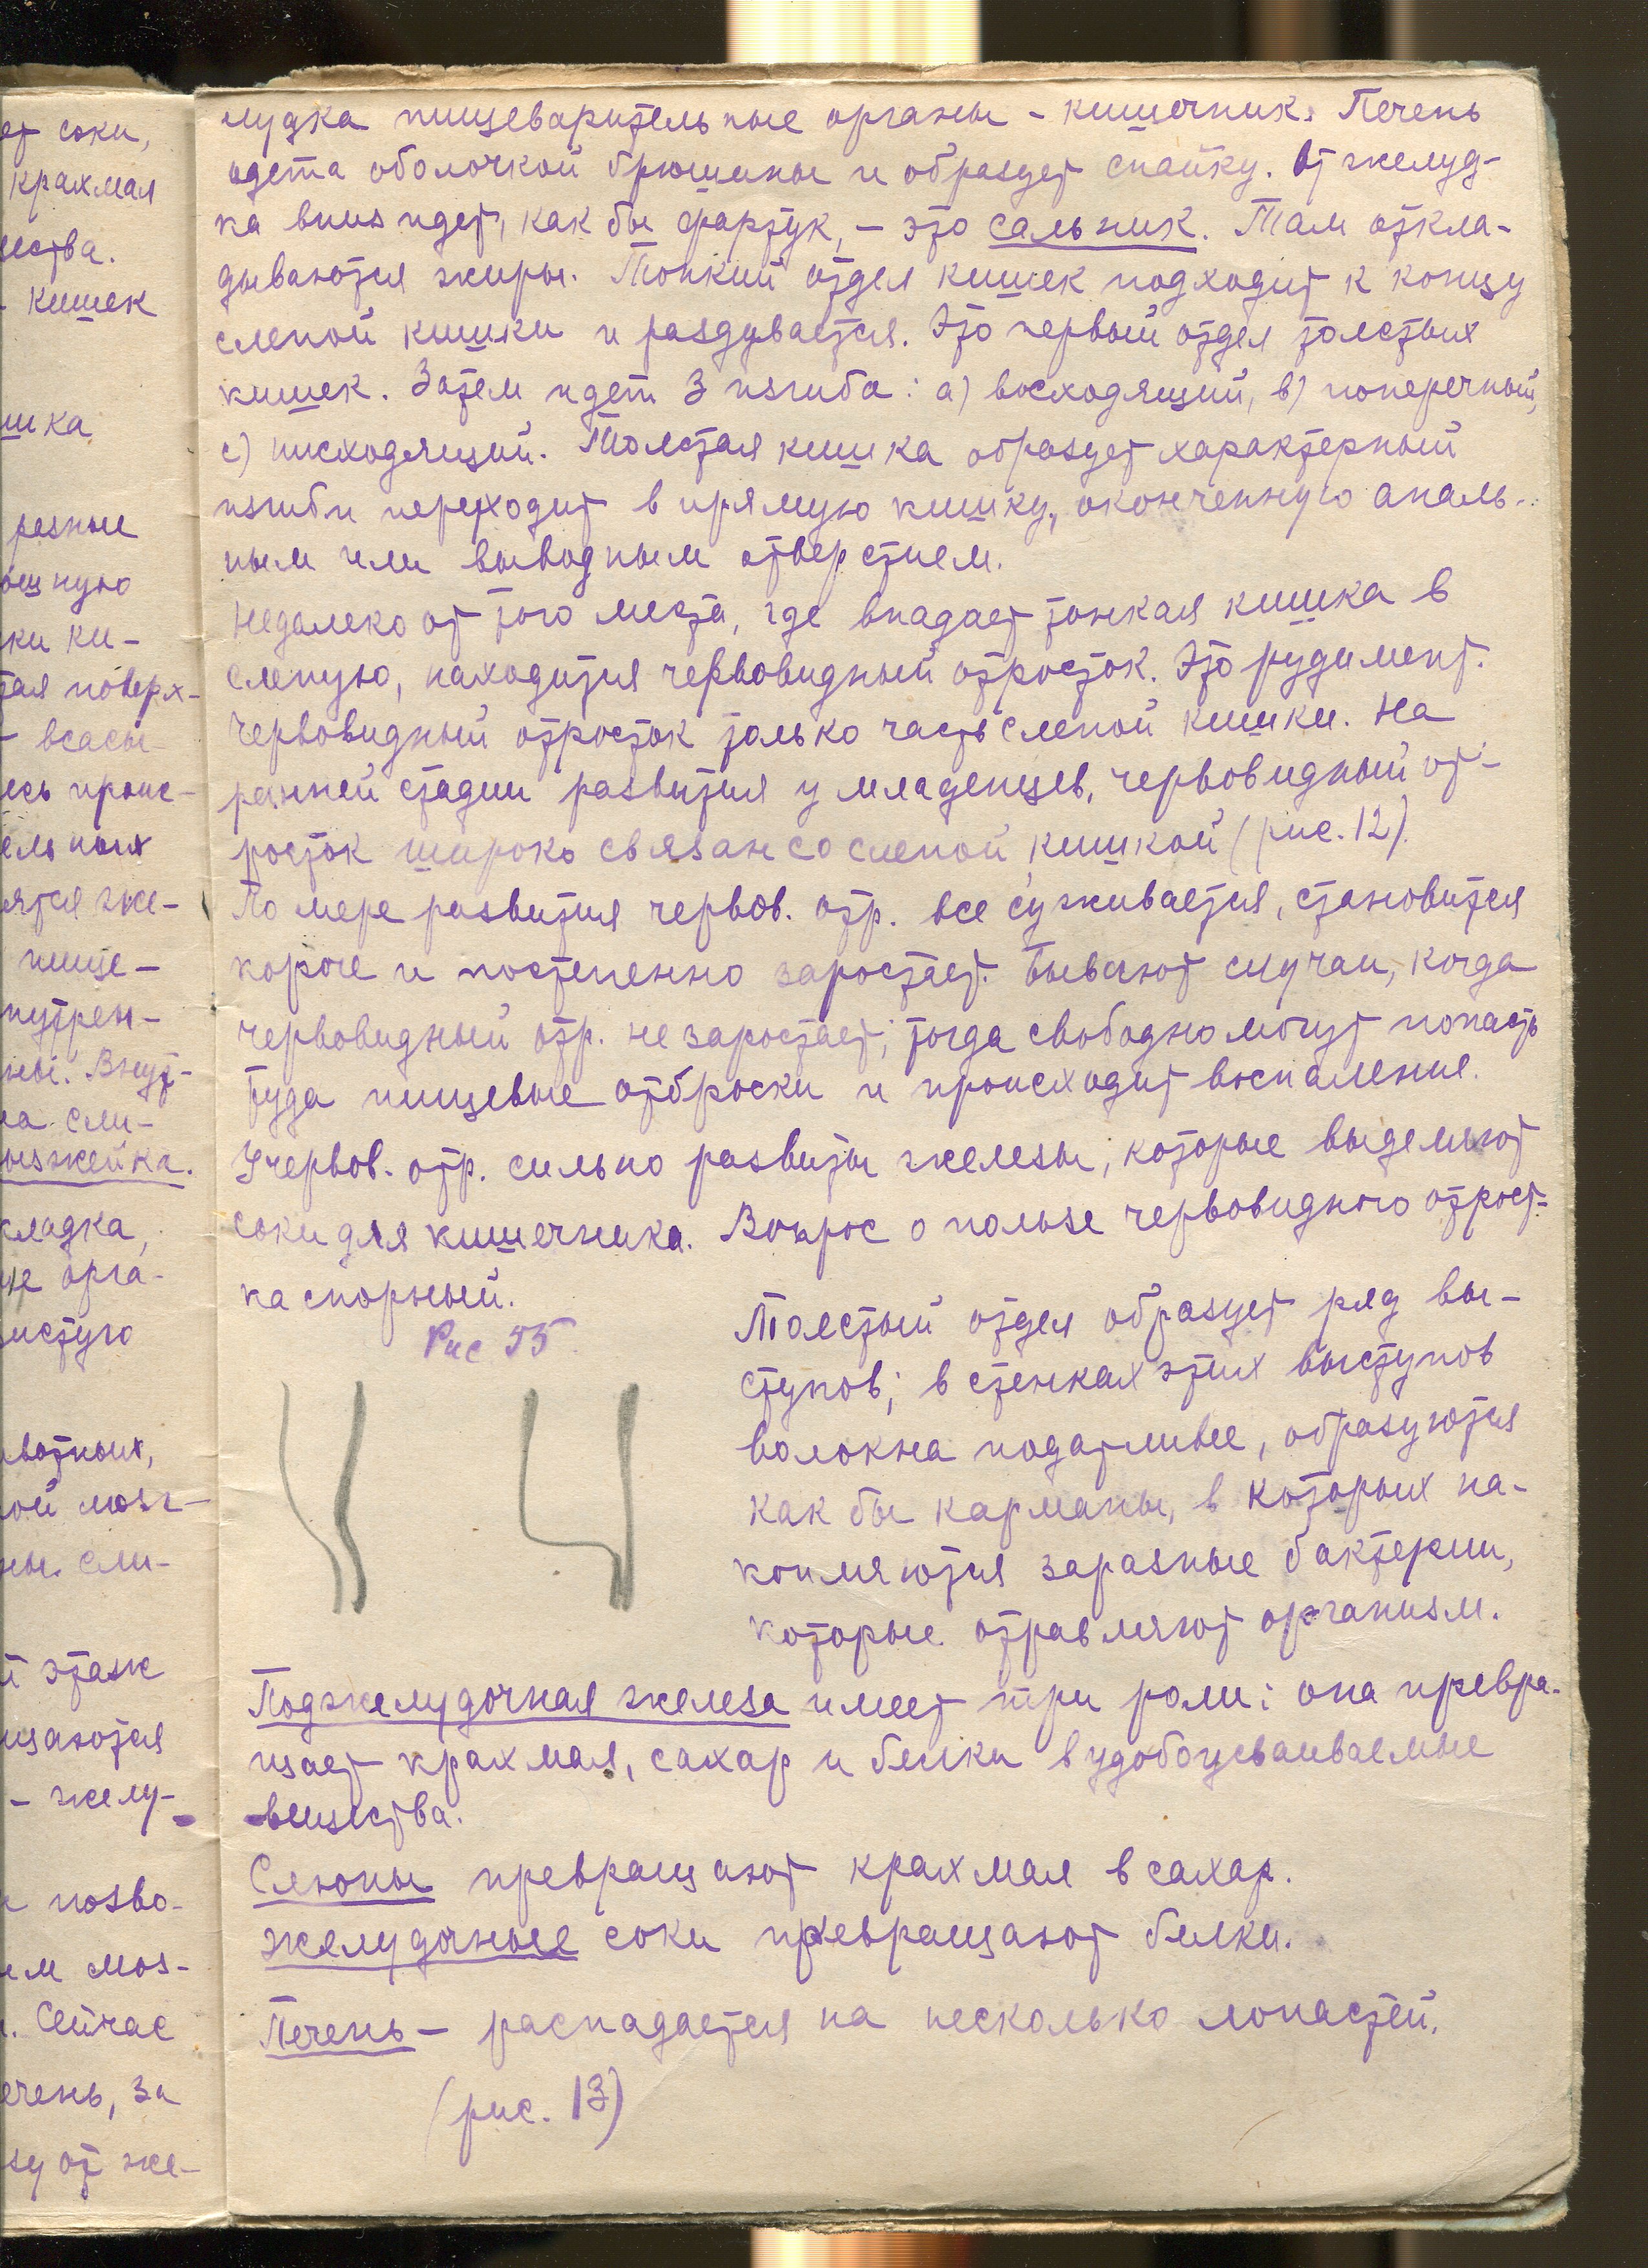 лудка пищеварительные органы - кишечник. Печень
одета оболочкой брюшины и образует спайку. От желуд-
ка вниз идет, как бы фартук, - это сальник. Там откла-
дываются жиры. Тонкий отдел кишек подходит к концу
слепой кишки и раздувается. Это первый отдел толстых
кишек. Затем идет 3 изгиба: а) восходящий, в) поперечный,
с) нисходящий. Толстая кишка образует характерный
изгиб и переходит в прямую кишку, оконченную аналь-
ным или выводным отверстием.
Недалеко от того места, где впадает тонкая кишка в
слепую, находится червовидный отросток. Это рудимент.
Червовидный отросток только часть слепой кишки. На
ранней стадии развития у младенцев, червовидный от-
росток широко связан со слепой кишкой (рис. 12).
По мере развития червов. отр. все суживается, становится
короче и постепенно заростает. Бывают случаи, когда
червовидный отр. не заростает; тогда свободно могут попасть
туда пищевые отброски и происходит воспаление.
У червов. отр. сильно развиты железы, которые выделяют
соки для кишечника. Вопрос о пользе червовидного отрост-
ка спорный.
Рис 55.
Толстый отдел образует ряд вы-
ступов; в стенках этих выступов
волокна податливее, образуются
как бы карманы, в которых на-
копляются заразные бактерии,
которые отравляют организм.
Поджелудочная железа имеет три роли: она превра-
щает крахмал, сахар и белки в удобоусваиваемые
вещества.
Слюны превращают крахмал в сахар.
Желудочные соки превращают белки.
Печень - распадается на несколько лопастей.
(рис. 13)
соки,
крахмал
кишек
ки-
поверх-
всасы-
же-
пище-
Внут-
сли-
орга-
мозг-
сли-
этаж
- желу-
позво-
моз-
Сейчас
за
от же-